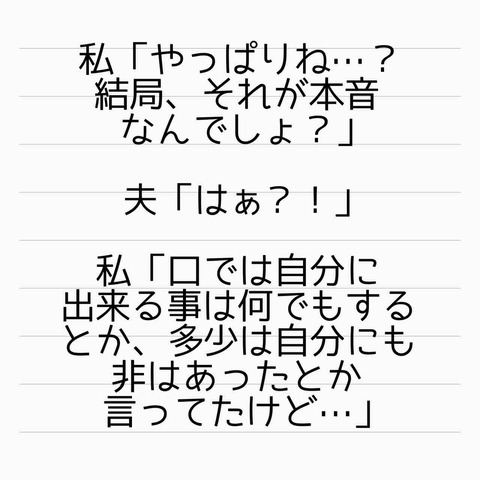 私「やっぱりね…？
結局、それが本音
なんでしょ？」
夫「はぁ？！」
私「口では自分に
出来る事は何でもする
とか、多少は自分にも
非はあったとか
言ってたけど…」